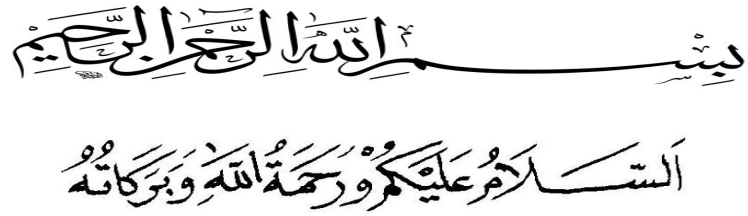 بِسْمِ اللَّهِ الرَّحْمَنِ الرَّحِيمِ
اَلسَّلَامُ عَلَيْكُمْ وَرَحْمَةُ اللَّهِ وَبَرَكَاتُهُ